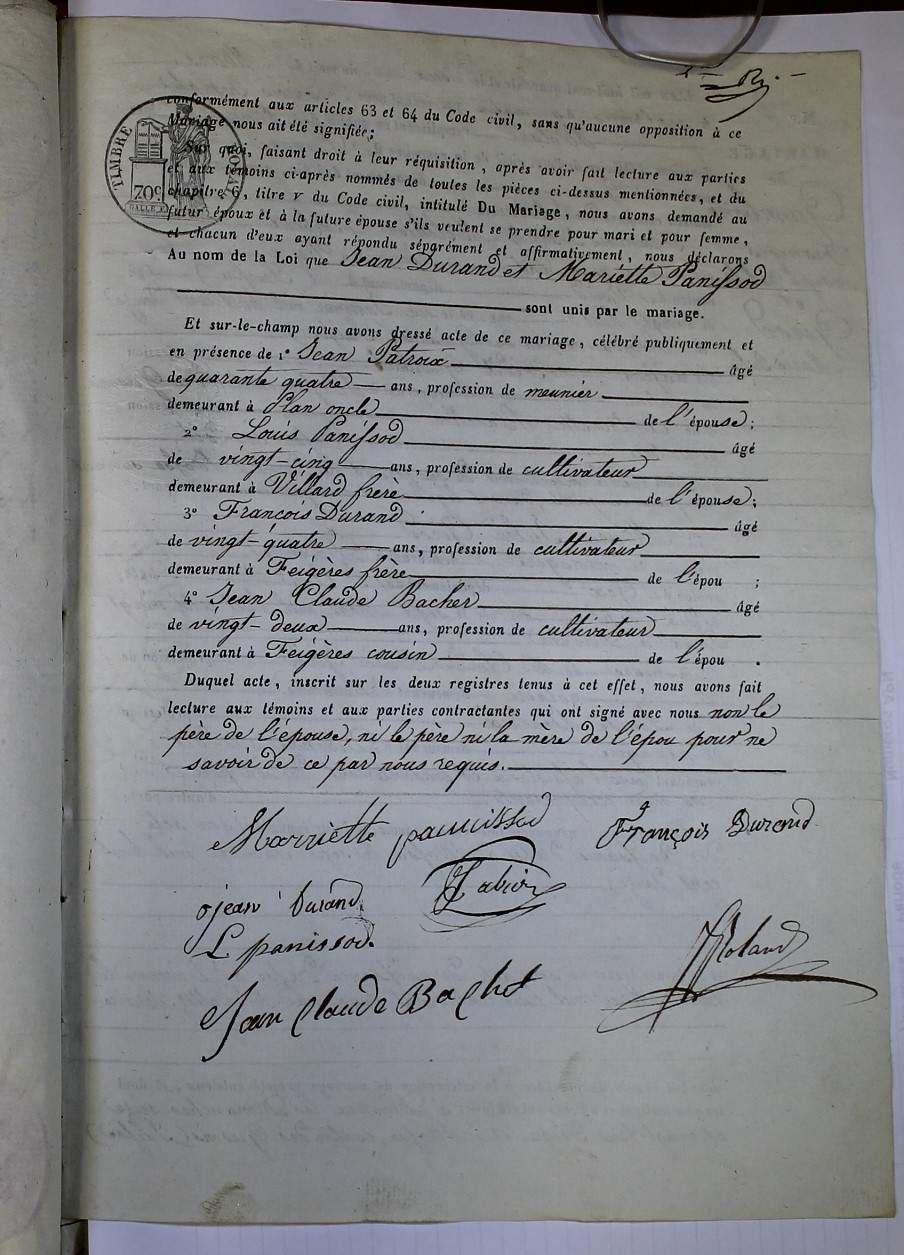 conformément aux articles 63 et 64 du Code civil, sans qu'aucune opposition à ce
Mariage nous ait été signifiée;
TIMBRE
70c
Sur quoi, faisant droit à leur réquisition, après avoir fait lecture aux parties
et aux témoins ci-après nommés de toutes les pièces ci-dessus mentionnées, et du
chapitre 6, titre v du Code civil, intitulé Du Mariage, nous avons demandé au
futur époux et à la future épouse s'ils veulent se prendre pour mari et pour femme,
et chacun d'eux ayant répondu séparément et affirmativement, nous déclarons
Au nom de la Loi que Jean Durand et Mariette Panissod
sont unis par le mariage.
Et sur-le-champ nous avons dressé acte de ce mariage, célébré publiquement et
en présence de 1° Jean Patroix âgé
de quarante quatre ans, profession de meunier
demeurant à Plan oncle de l'épouse;
2° Louis Panissod âgé
de vingt-cinq ans, profession de cultivateur
demeurant à Villard frère de l'épouse;
3° François Durand âgé
de vingt-quatre ans, profession de cultivateur
demeurant à Feigères frère de l'épou ;
4° Jean Claude Bacher âgé
de vingt-deux ans, profession de cultivateur
demeurant à Feigères cousin de l'épou .
Duquel acte, inscrit sur les deux registres tenus à cet effet, nous avons fait
lecture aux témoins et aux parties contractantes qui ont signé avec nous non le
père de l'épouse, ni le père ni la mère de l'épou pour ne
savoir de ce par nous requis.
Marriette pannissod
François Durand
jean durand
L panissod
Jean Claude Bachet